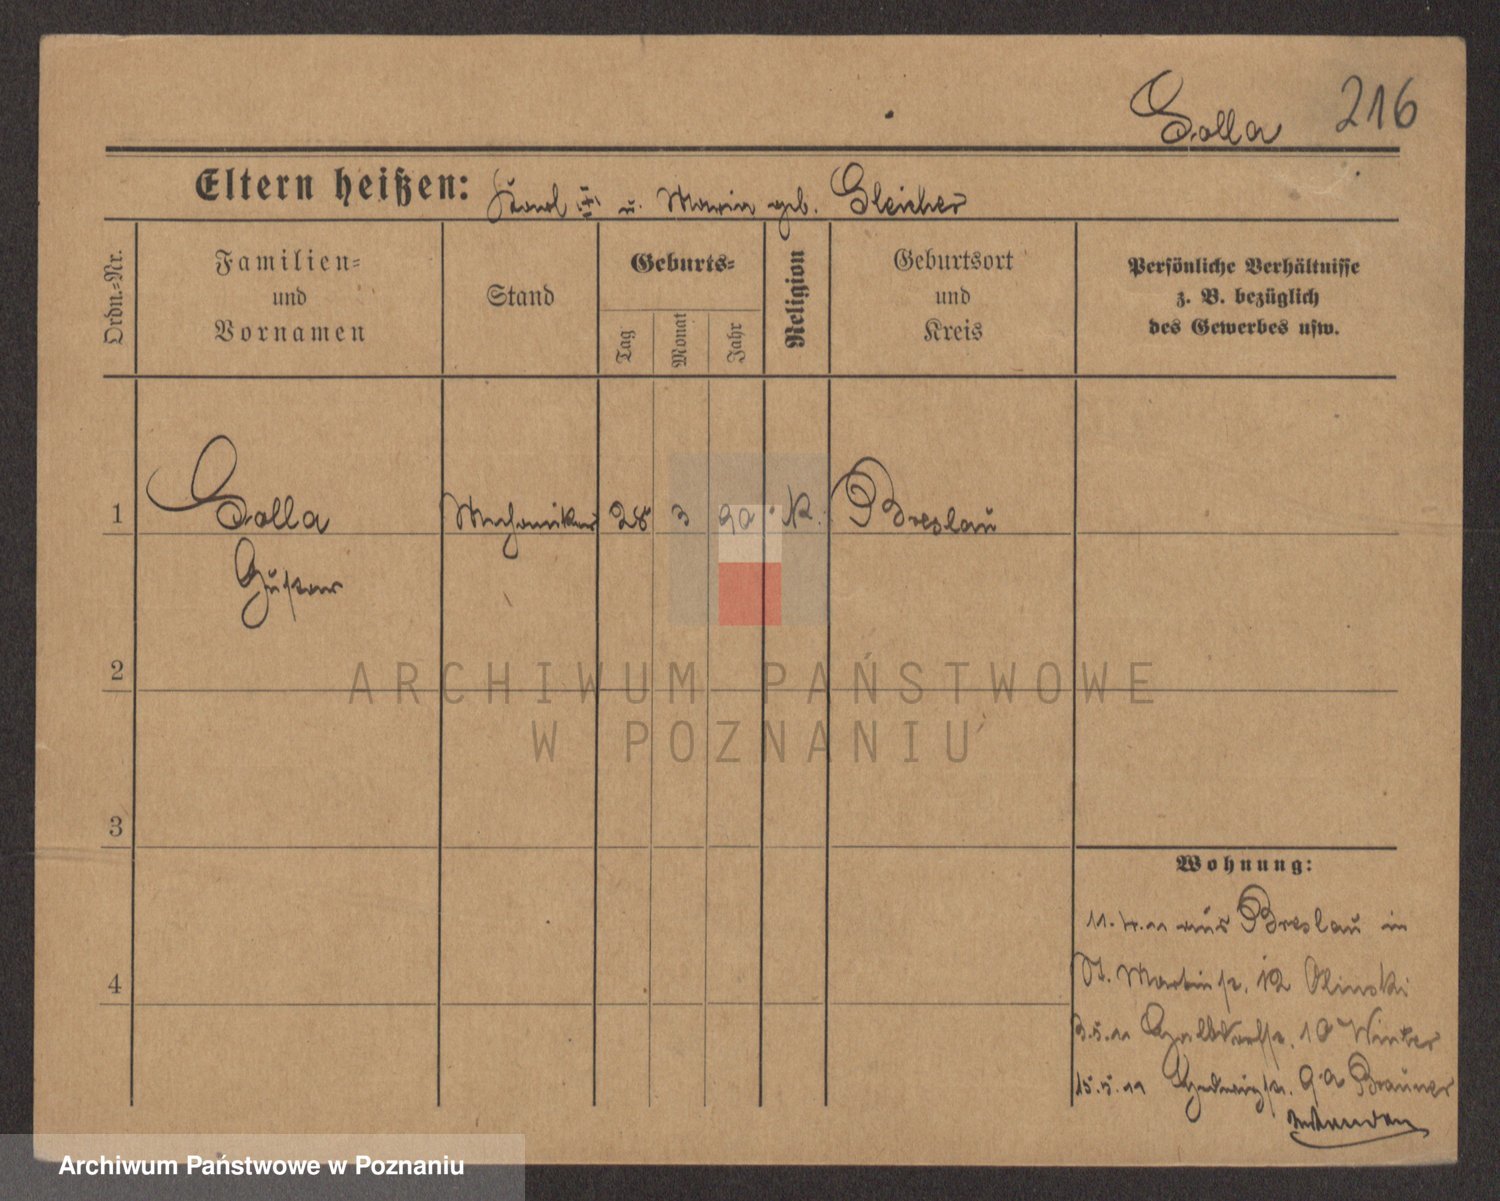 Solla 216
Eltern heißen: Karl III u. Maria geb. Gleicher
Ordn.-Nr.
Familien-
und
Vornamen
Stand
Geburts-
Tag
Monat
Jahr
Religion
Geburtsort
und
Kreis
Persönliche Verhältnisse
z. B. bezüglich
des Gewerbes usw.
1 Solla Mechaniker 28 3 90. K. Breslau
Gustav
2
3
4
ARCHIWUM PAŃSTWOWE
W POZNANIU
Wohnung:
11.4.11 aus Breslau in
St. Martinstr. 12 Olinski
3.5.11 10 Winter
15.5.11 Hedwigstr. 9a Brauner
Archiwum Państwowe w Poznaniu